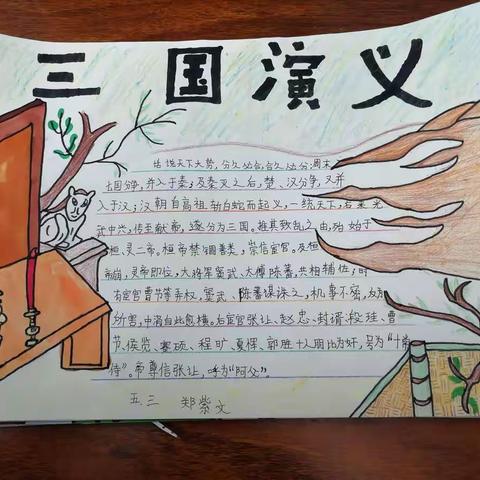 三国演义
话说天下大势，分久必合，合久必分：周末
七国分争，并入于秦；及秦灭之后，楚、汉分争，又并
入于汉；汉朝自高祖斩白蛇而起义，一统天下，后来光
武中兴，传至献帝，遂分为三国。推其致乱之由，殆始于
桓、灵二帝。桓帝禁锢善类，崇信宦官。及桓
帝崩，灵帝即位，大将军窦武、太傅陈蕃，共相辅佐；时
有宦官曹节等弄权，窦武、陈蕃谋诛之，机事不密，反
所害，中涓自此愈横。后宦官张让、赵忠、封谞、段珪、曹
节、侯览、蹇硕、程旷、夏恽、郭胜十人朋比为奸，号为“十常
侍”。帝尊信张让，呼为“阿父”。
五.三 郑紫文